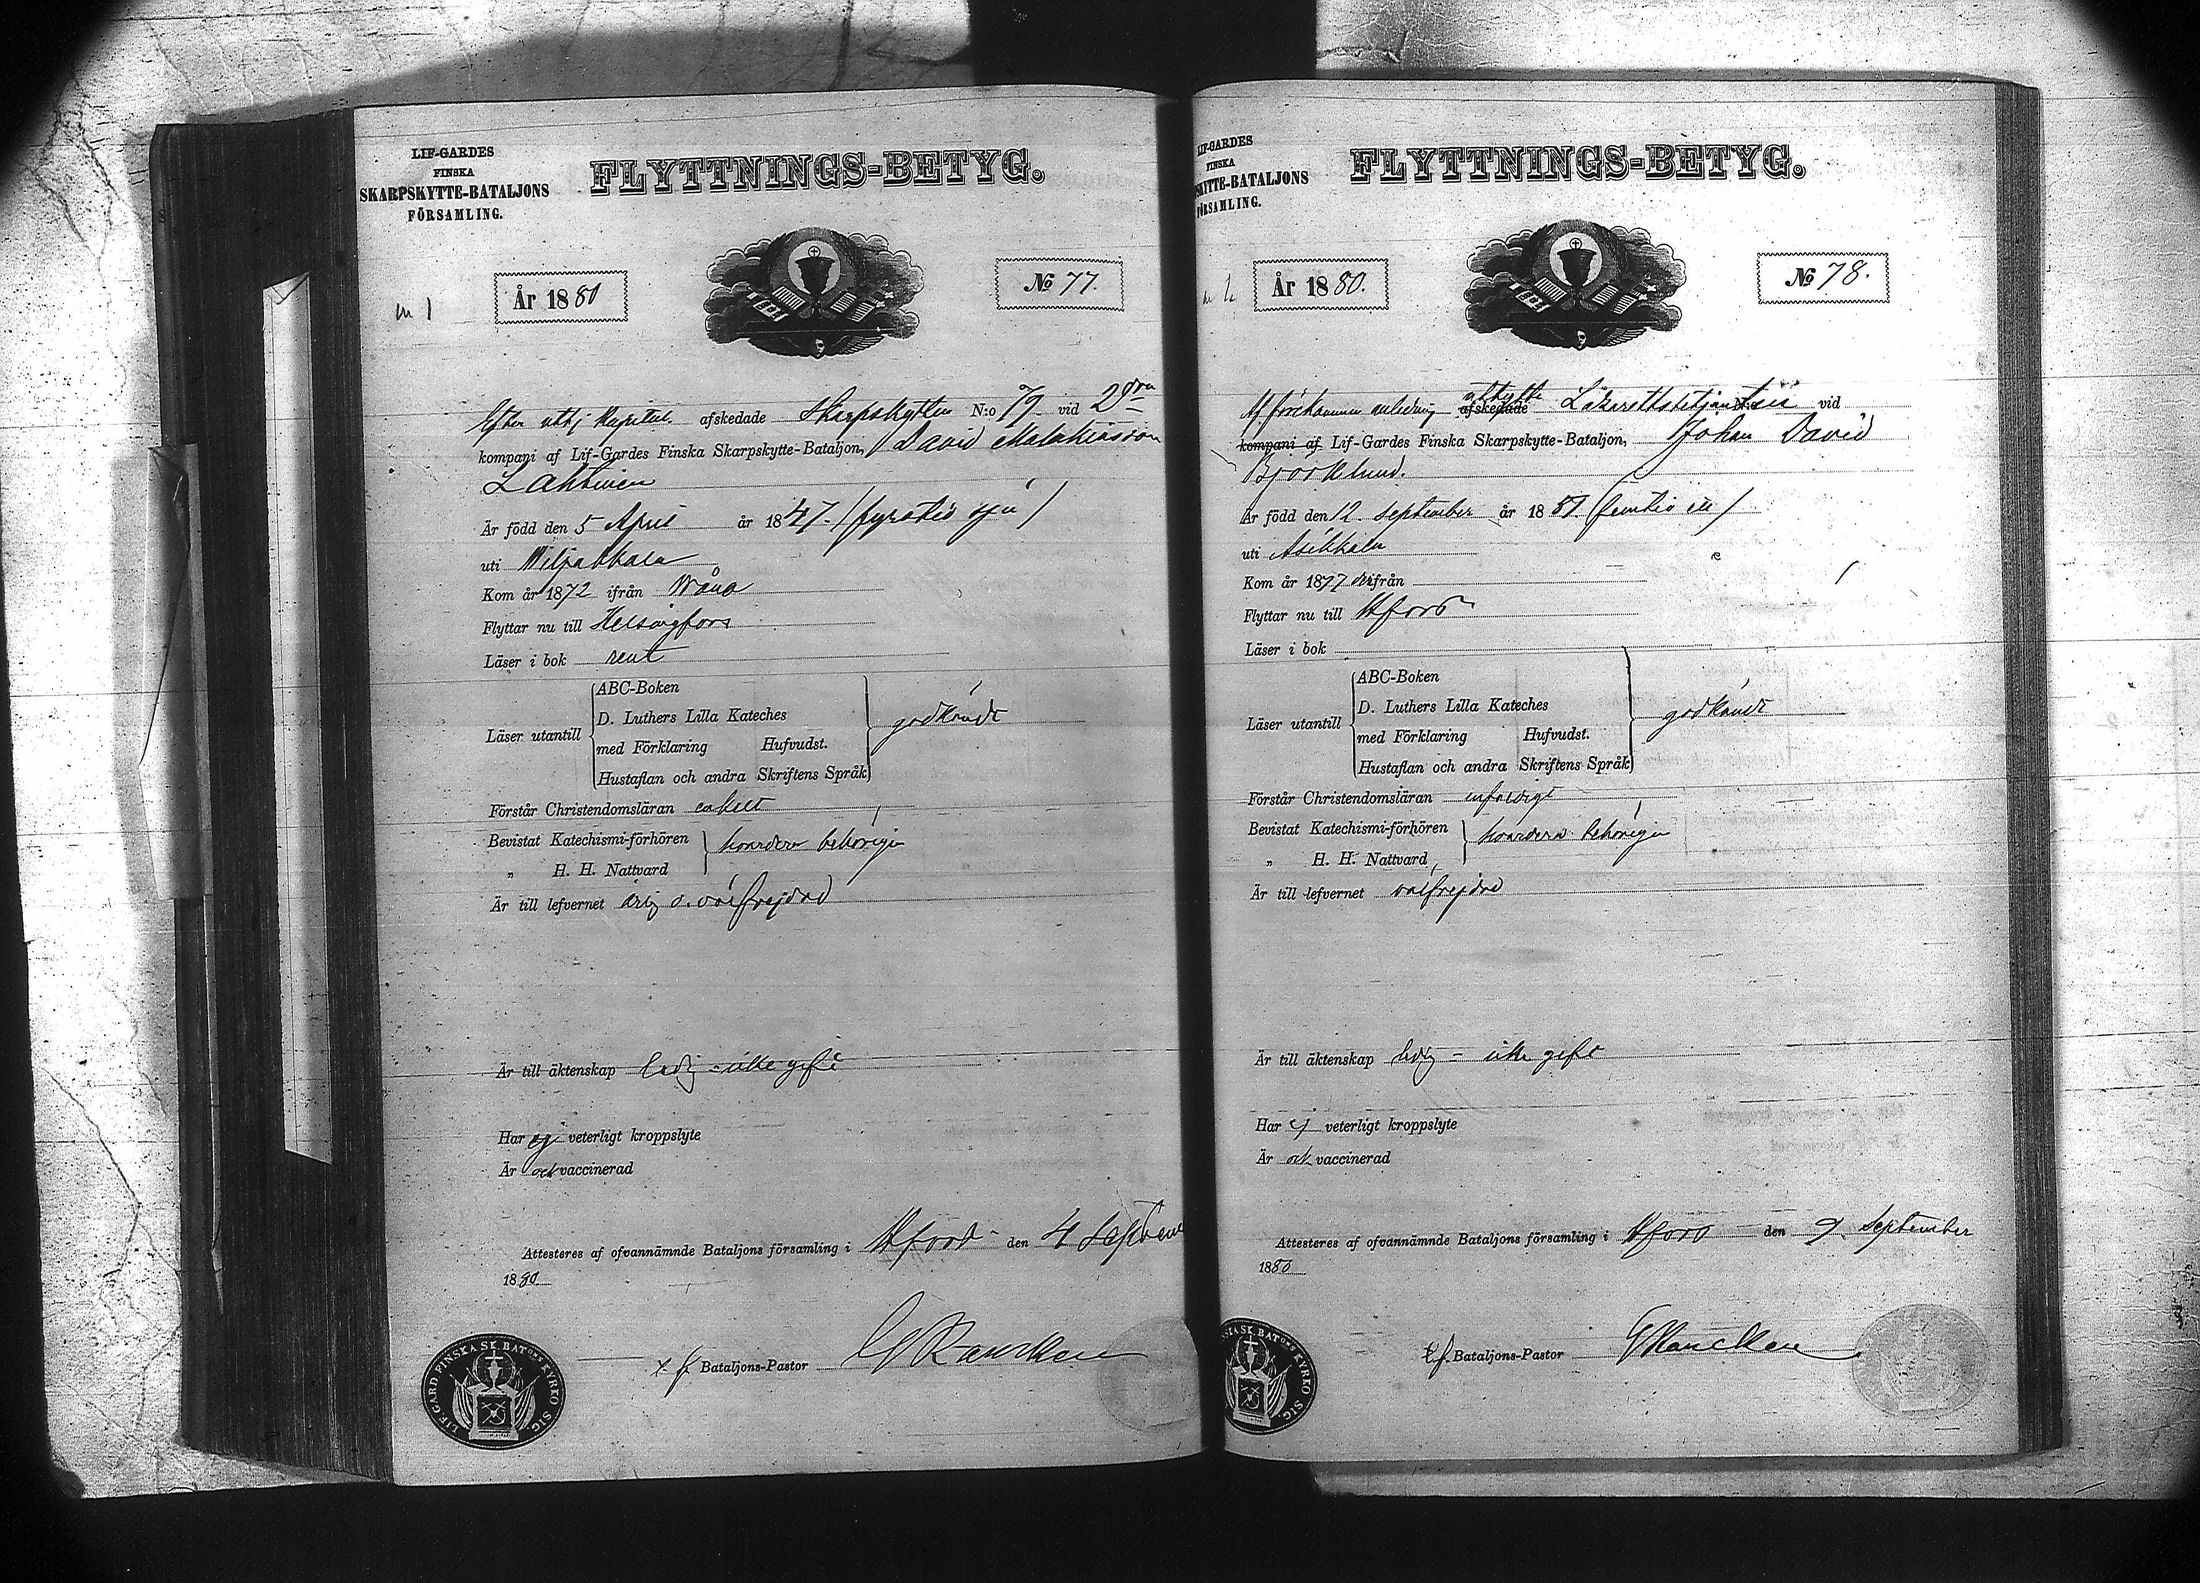 LIF-GARDES
FINSKA
SKARPSKYTTE-BATALJONS
FÖRSAMLING.
FLYTTNINGS-BETYG.
År 1880
No 77.
m 1
Efter uttj. Kapitul. afskedade Skarpskytten N:o 79 vid 2dra
kompani af Lif-Gardes Finska Skarpskytte-Bataljon, David
Lahtinen
Är född den 5 April år 1847. (fyratio sju)
uti Wiljakkala
Kom år 1872 ifrån Wånå
Flyttar nu till Helsingfors
Läser i bok rent
Läser utantill
ABC-Boken
D. Luthers Lilla Kateches
med Förklaring Hufvudst.
Hustaflan och andra Skriftens Språk
godkändt
Förstår Christendomsläran enkelt
Bevistat Katechismi-förhören
„ H. H. Nattvard
hvardera behörigen
Är till lefvernet ärlig o. välfrejdad
Är till äktenskap ledig - icke gift
Har ej veterligt kroppslyte
Är ock vaccinerad
Attesteres af ofvannämnde Bataljons församling i Hfors den 4 Septem
1880.
t. f. Bataljons-Pastor G Rancken
LIF. GARD. FINSKA SK. BATONS KYRKO SIG.
LIF-GARDES
FINSKA
SKYTTE-BATALJONS
FÖRSAMLING.
FLYTTNINGS-BETYG.
År 1880.
No 78.
Af förekommen anledning afskedade utbytte vid
kompani af Lif-Gardes Finska Skarpskytte-Bataljon, Johan David
Björklund.
Är född den 12. September år 1851. (femtio ett)
uti Asikkala
Kom år 1877 ifrån
Flyttar nu till Hfors
Läser i bok
Läser utantill
ABC-Boken
D. Luthers Lilla Kateches
med Förklaring Hufvudst.
Hustaflan och andra Skriftens Språk
godkändt
Förstår Christendomsläran enfaldigt
Bevistat Katechismi-förhören
„ H. H. Nattvard
hvardera behörigen
Är till lefvernet välfrejdad
Är till äktenskap ledig - icke gift
Har ej veterligt kroppslyte
Är ock vaccinerad
Attesteres af ofvannämnde Bataljons församling i Hfors den 9. September
1880
t. f. Bataljons-Pastor G Rancken
SK. BATONS KYRKO SIG.